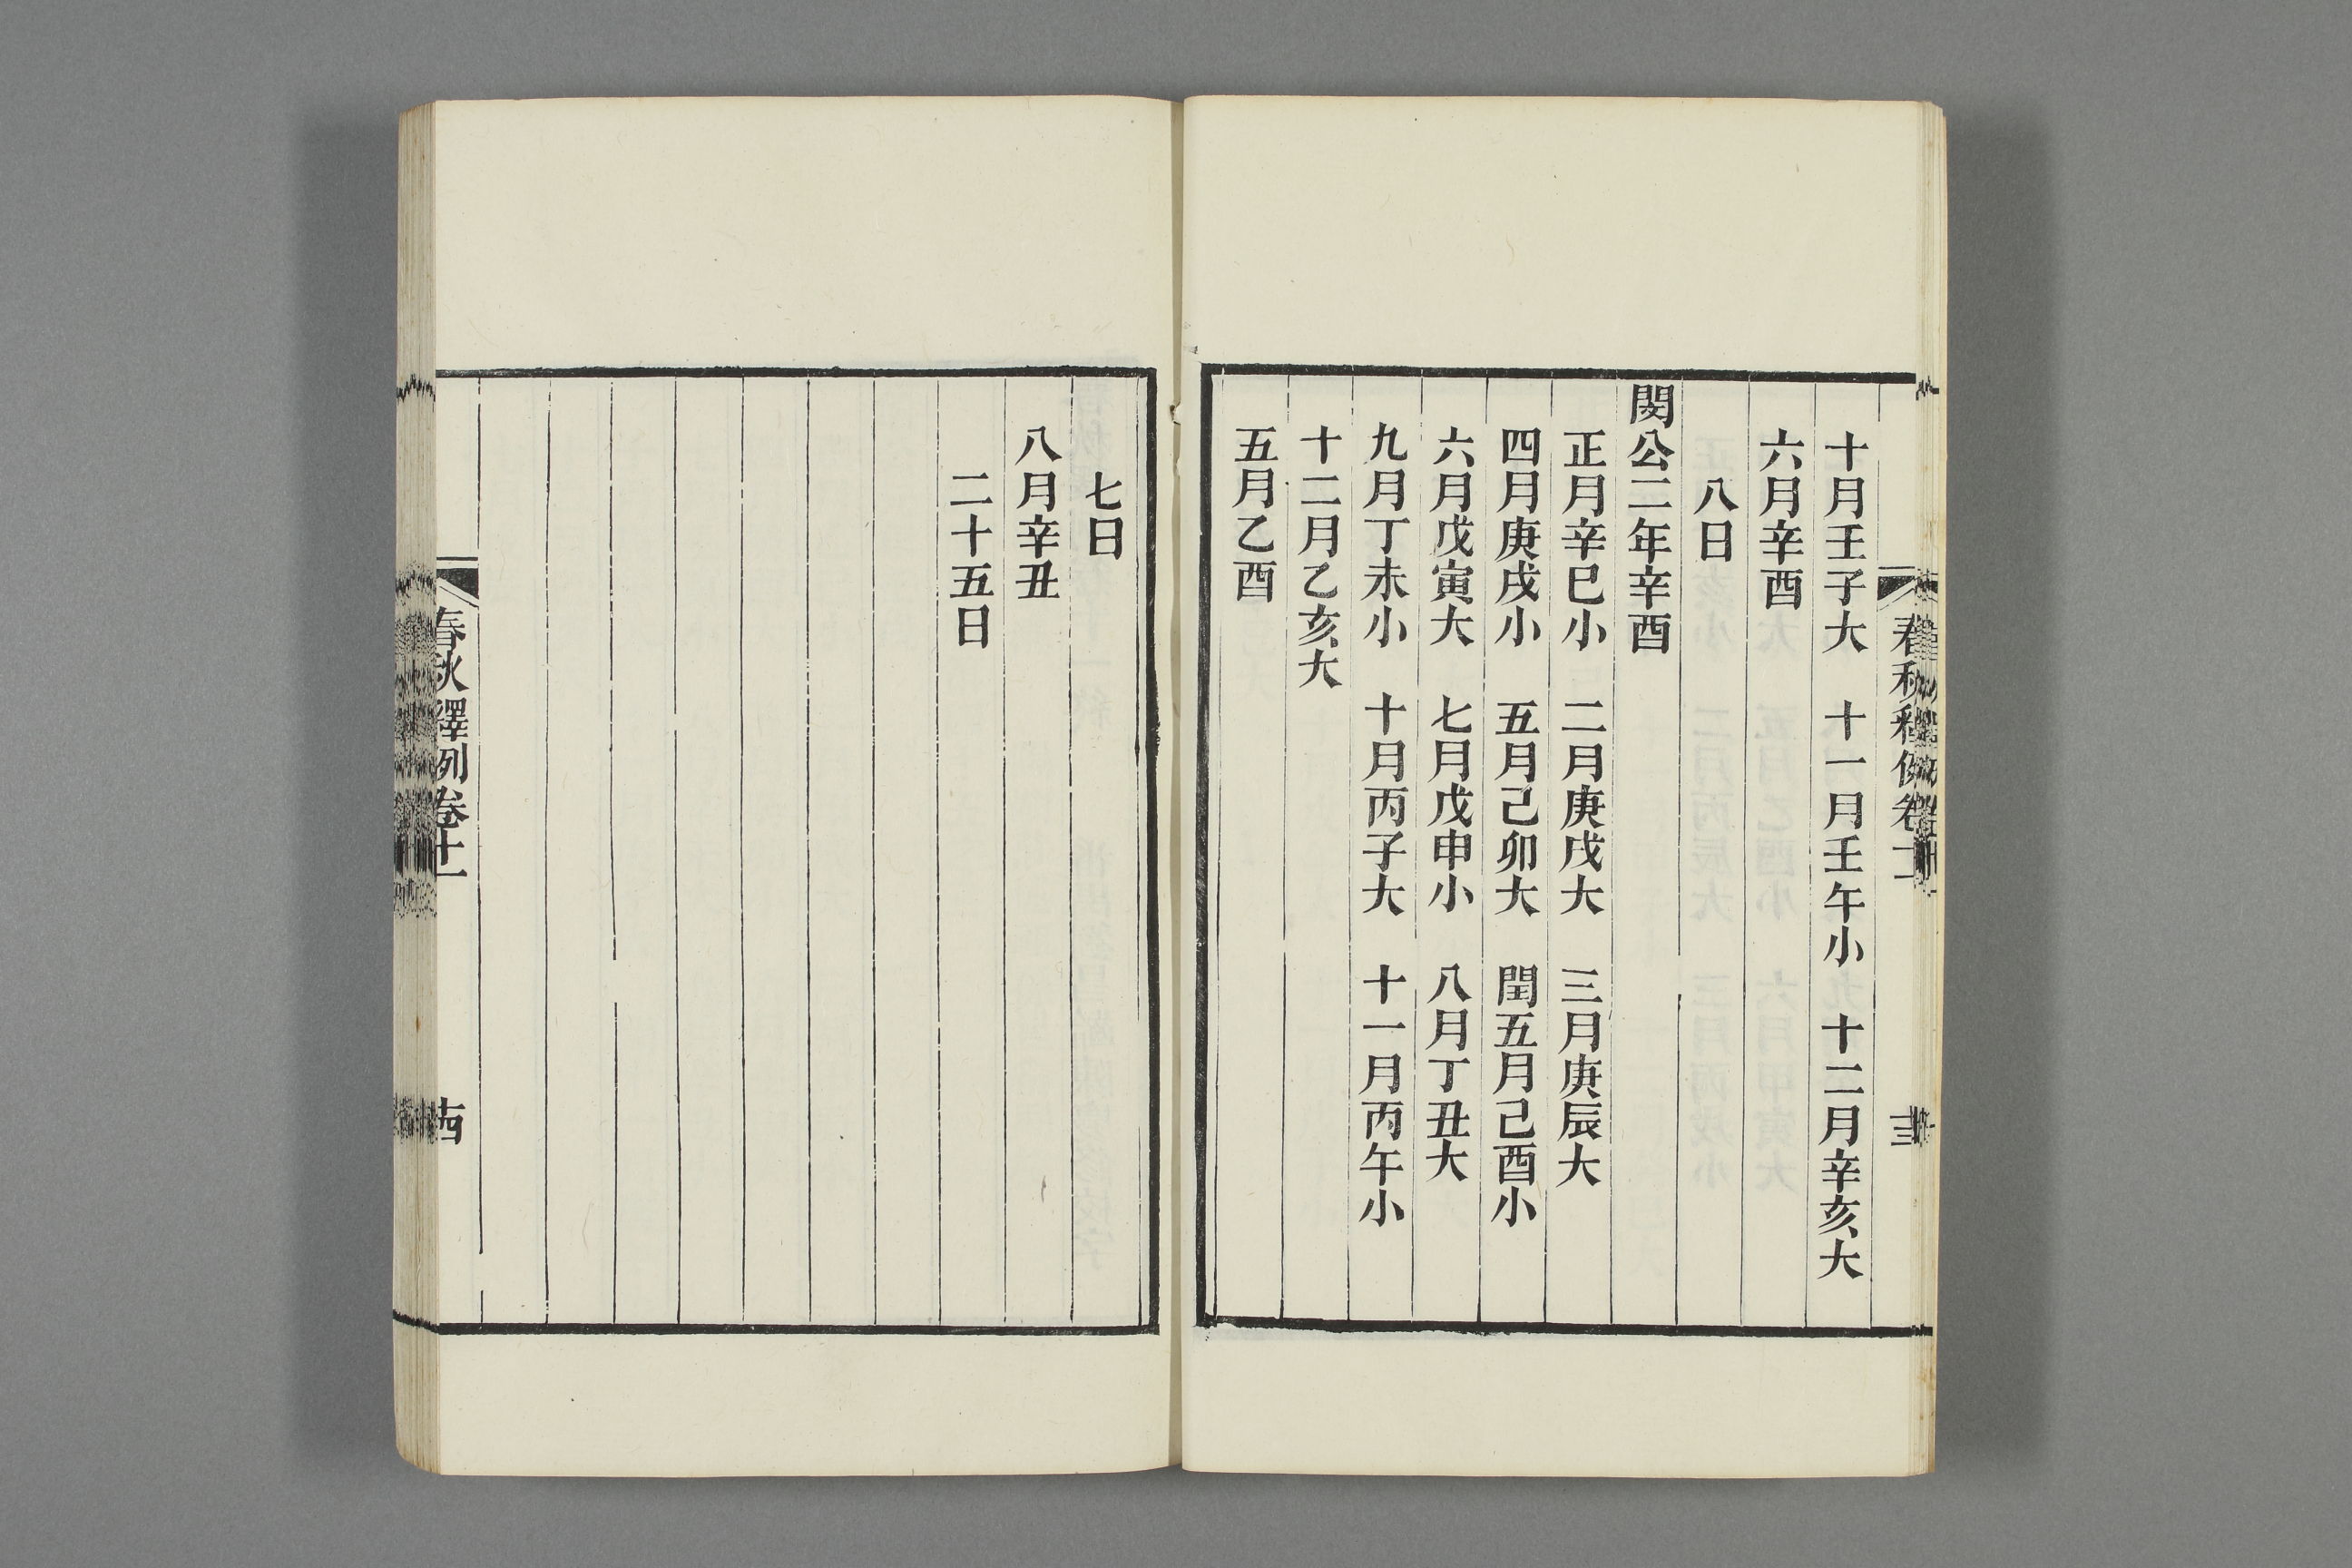 十月壬子大　十一月壬午小　十二月辛亥大
六月辛酉
八日
閔公二年辛酉
正月辛巳小　二月庚戌大　三月庚辰大
四月庚戌小　五月己卯大　閏五月己酉小
六月戊寅大　七月戊申小　八月丁丑大
九月丁未小　十月丙子大　十一月丙午小
十二月乙亥大
五月乙酉
七日
八月辛丑
二十五日
春秋釋例卷十一
十四